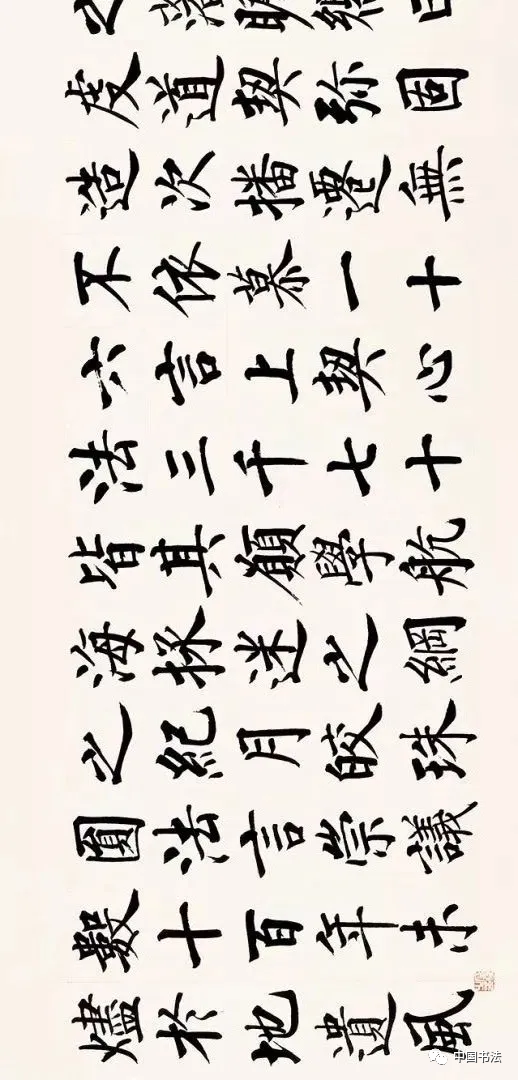 之
度道契弥固
造次播遷無
不依慕一十
六言上契心
法三千七十
皆其願學航
海採迷之綱
之紀月皎珠
圓法言崇議
數十百年未
燼於地遺風
中国书法